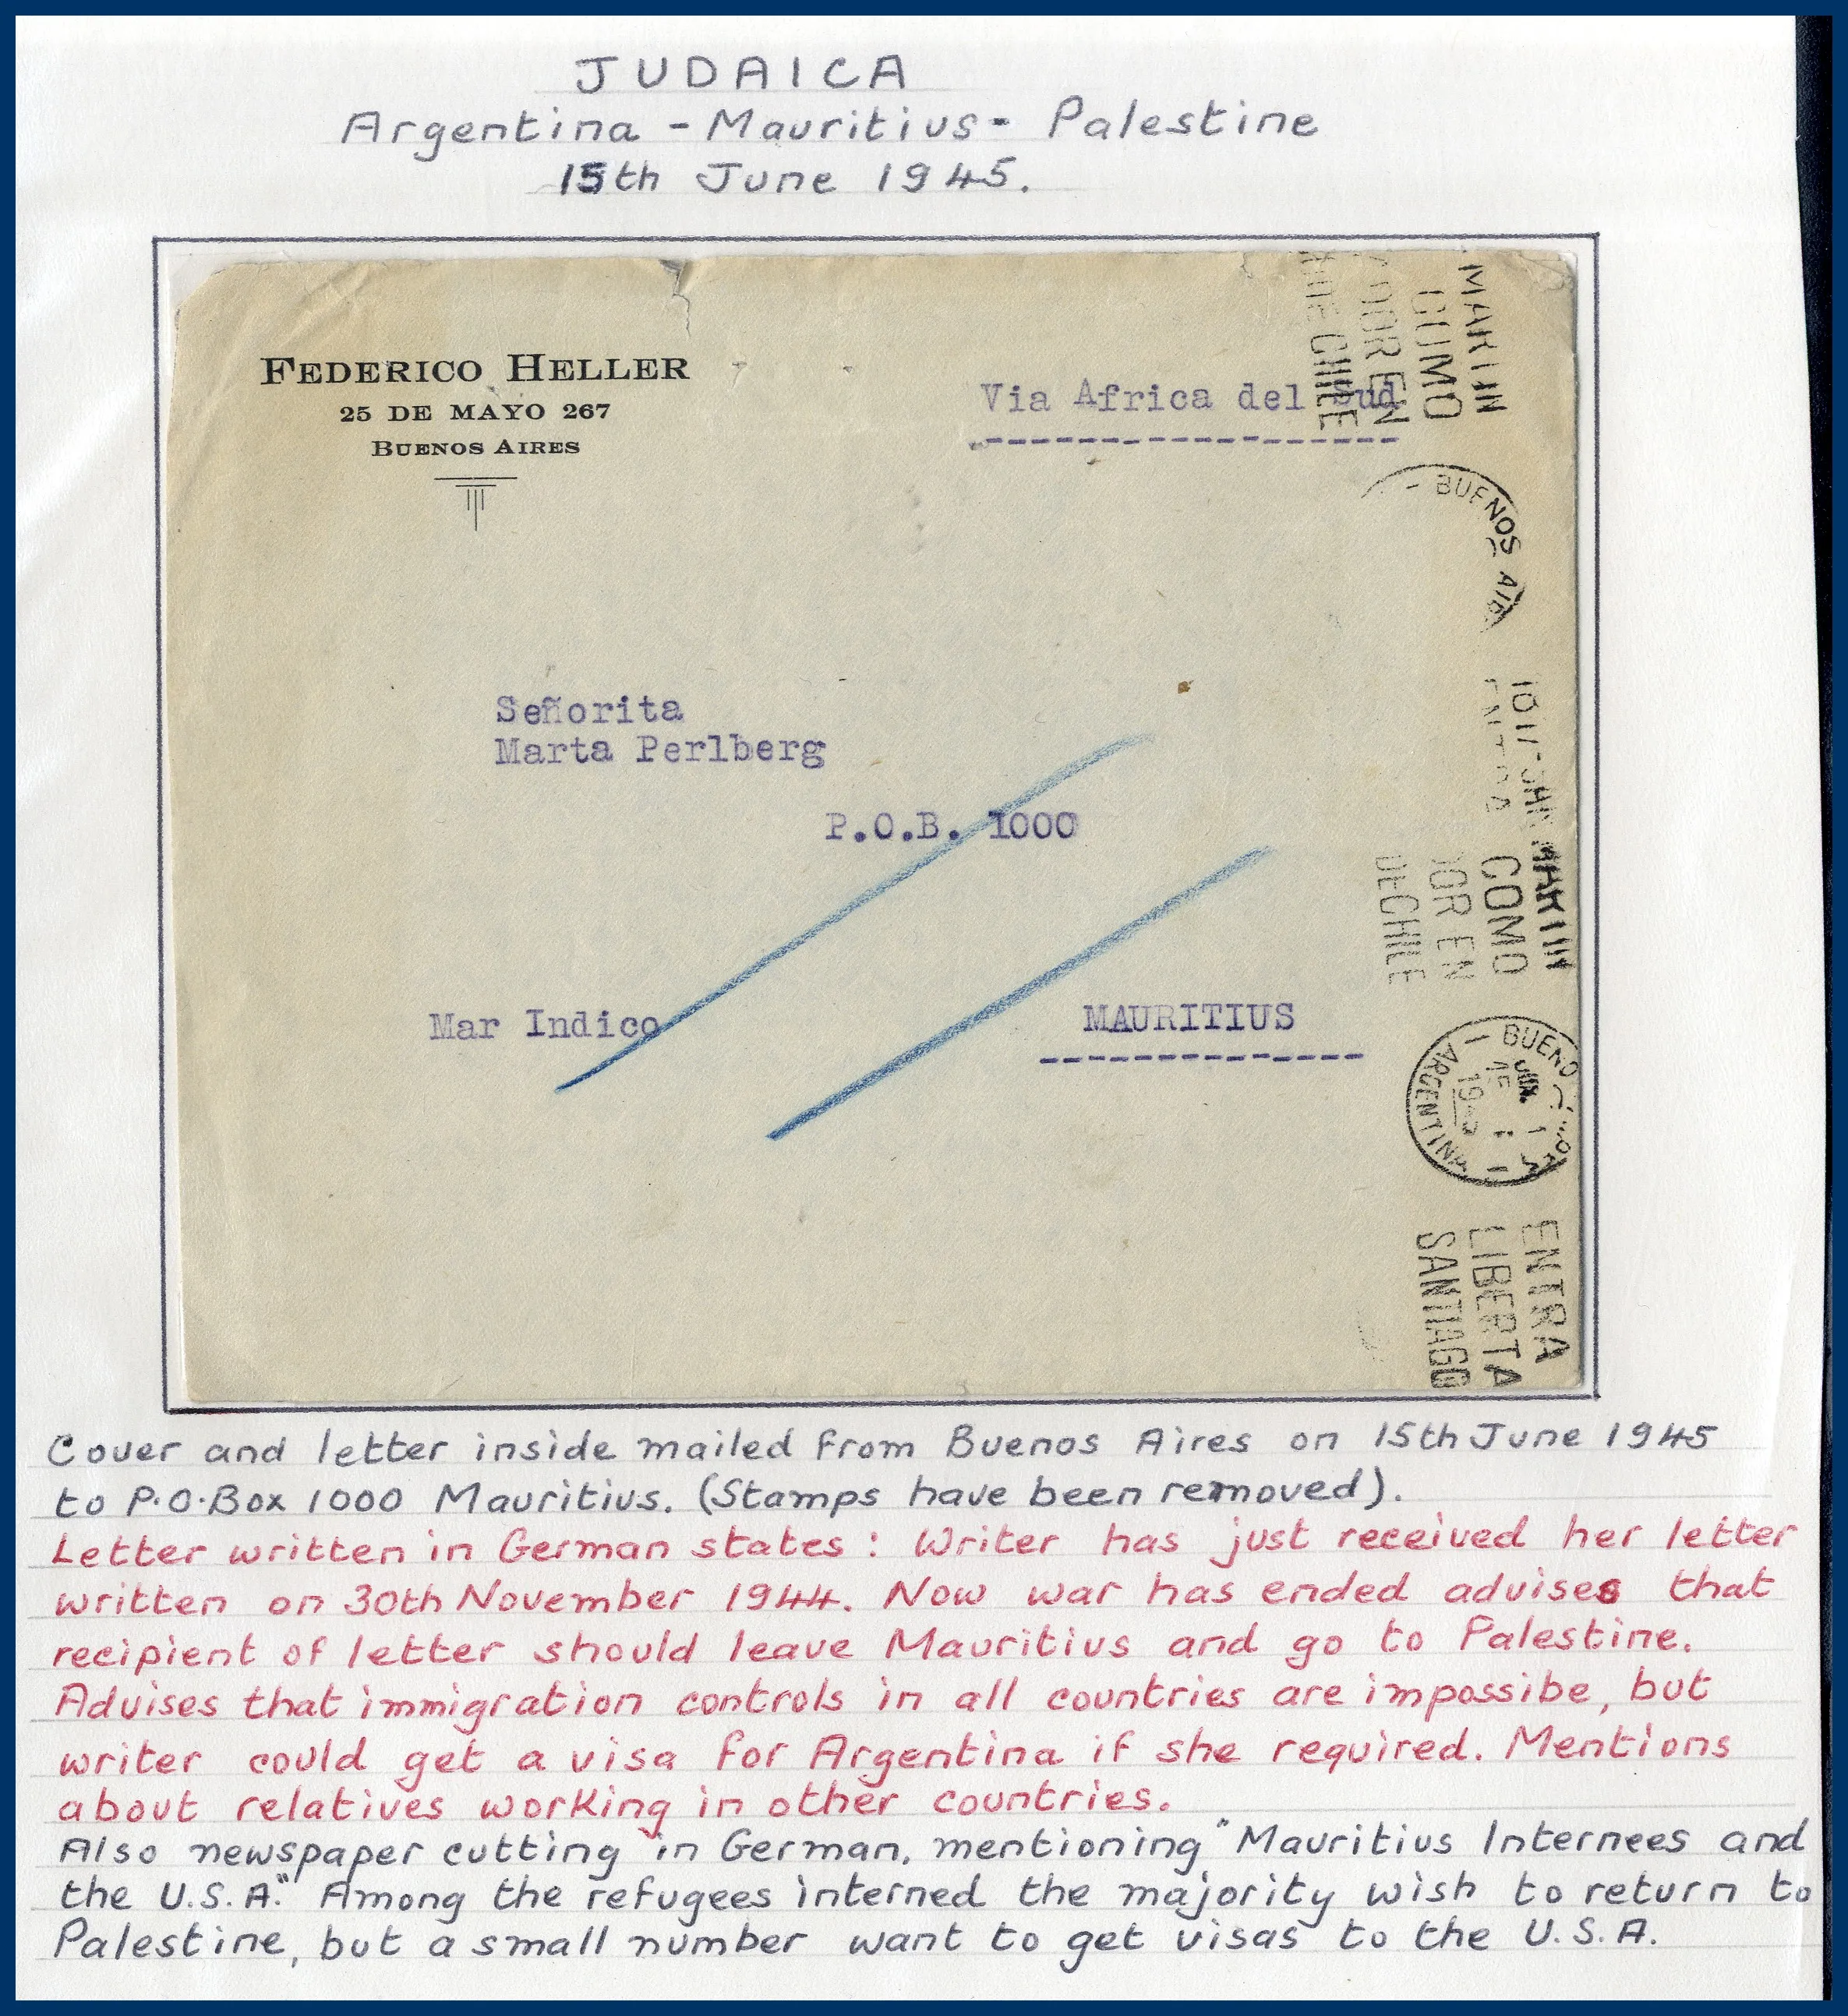 JUDAICA
Argentina - Mauritius - Palestine
15th June 1945.
FEDERICO HELLER
25 DE MAYO 267
BUENOS AIRES
Via Africa del Sud
MARTIN
COMO
DOR EN
DE CHILE
- BUENOS AIR
Señorita
Marta Perlberg
P.O.B. 1000
Mar Indico
MAURITIUS
MARTIN
COMO
DOR EN
DE CHILE
- BUENO
ARGENTINA -
JUN.
15
ENTRA
LIBERTA
SANTIAGO
Cover and letter inside mailed from Buenos Aires on 15th June 1945
to P.O.Box 1000 Mauritius. (Stamps have been removed).
Letter written in German states: Writer has just received her letter
written on 30th November 1944. Now war has ended advises that
recipient of letter should leave Mauritius and go to Palestine.
Advises that immigration controls in all countries are impossibe, but
writer could get a visa for Argentina if she required. Mentions
about relatives working in other countries.
Also newspaper cutting in German, mentioning "Mauritius Internees and
the U.S.A." Among the refugees interned the majority wish to return to
Palestine, but a small number want to get visas to the U.S.A.